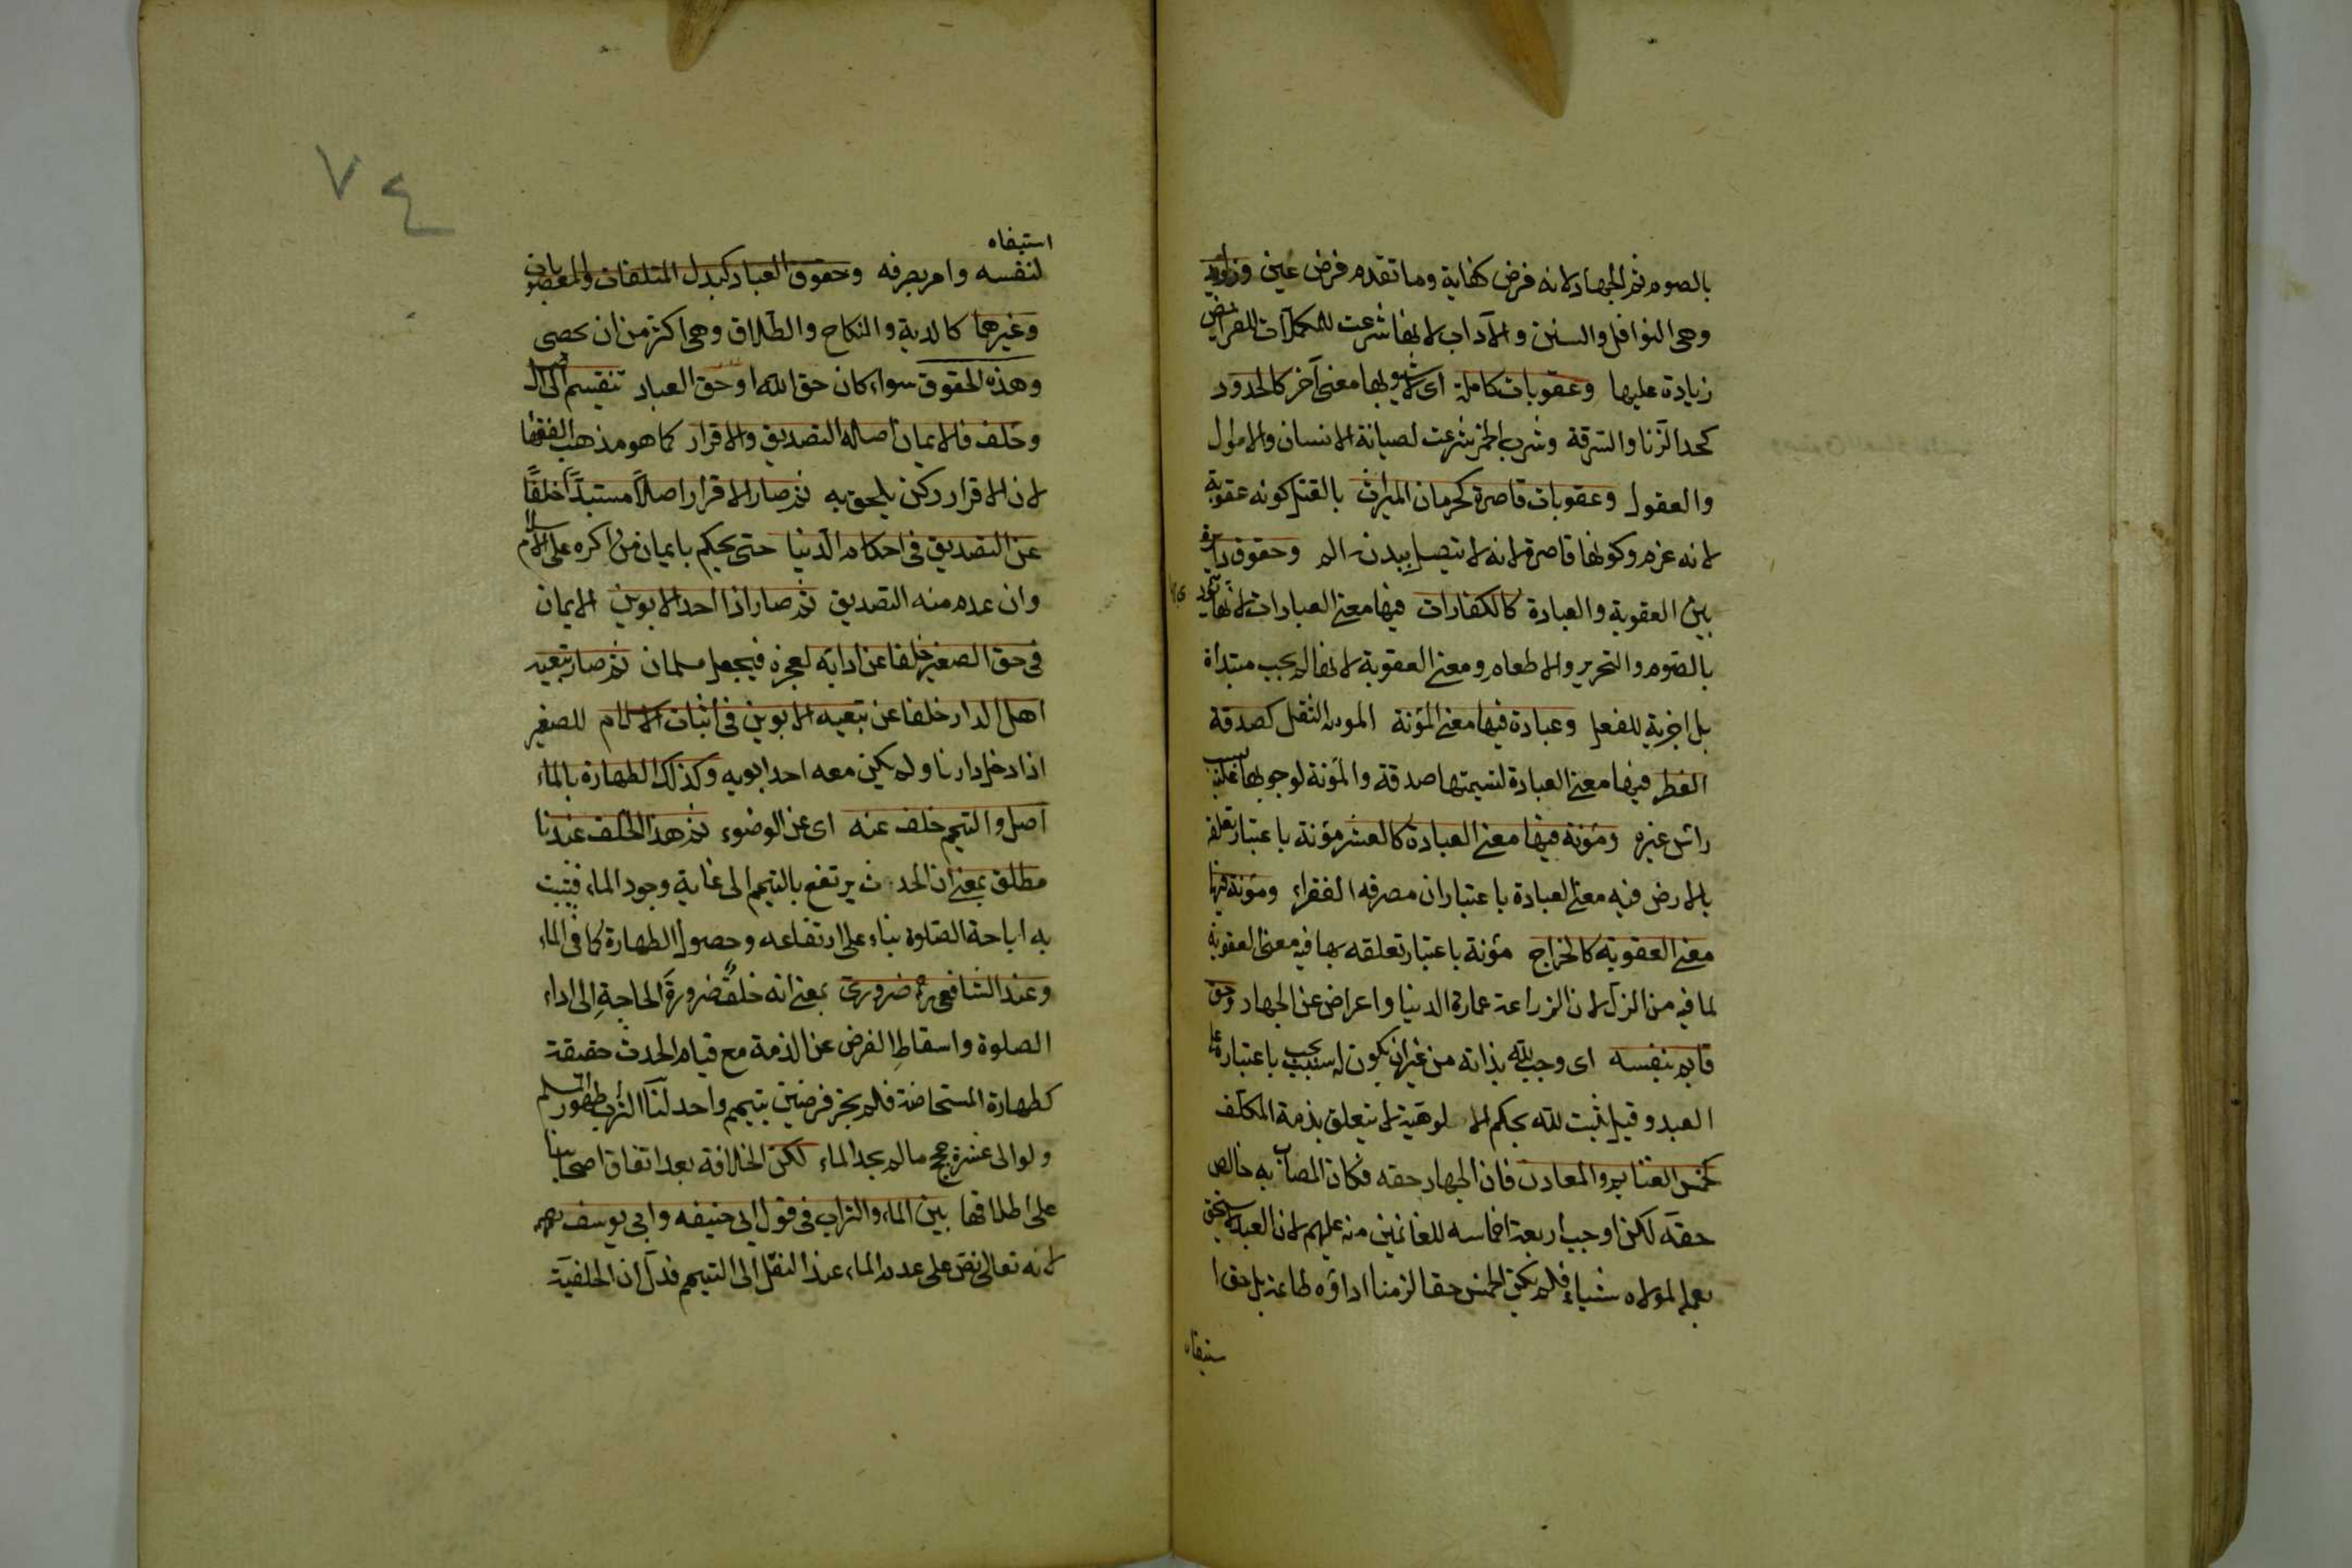 بالصوم ثم الجهاد لانه فرض كفاية وما تقدم فرض عين وزوايد
وهي النوافل والسنن والآداب لانها شرعت مكملات للفرايض
زيادة عليها وعقوبات كاملة اى لا يشوبها معنى آخر كالحدود
كحد الزنا والسرقة وشرب الخمر شرعت لصيانة الانساب والاموال
والعقول وعقوبات قاصرة كحرمان الميراث بالقتل كونه عقوبة
لانه غرم وكونها قاصرة لانه لا يتصل ببدنه الم وحقوق دايرة
بين العقوبة والعبادة كالكفارات فيها معنى العبادات لانها تؤدى
بالصوم والتحرير والاطعام ومعنى العقوبة لانها لم يجب مبتدأة
بل اجزية للفعل وعبادة فيها معنى المؤنة المؤنة الثقل كصدقة
الفطر فيها معنى العبادة لتسميتها صدقة والمؤنة لوجوبها عليه بسبب
راس غيره ومؤنة فيها معنى العبادة كالعشر مؤنة باعتبار تعلقه
بالارض فيه معنى العبادة باعتبار ان مصرفه الفقراء ومؤنة فيها
معنى العقوبة كالخراج مؤنة باعتبار تعلقه بها فيه معنى العقوبة
لما فيه من الذل لان الزراعة عمارة الدنيا واعراض عن الجهاد وحق
قايم بنفسه اى وجب لله بذاته من غير ان يكون له سبب يجب باعتباره على
العبد وقيل ثبت لله بحكم الالوهية لا يتعلق بذمة المكلف
كخمس الغنايم والمعادن فان الجهاد حقه فكان المصاب به خالص
حقه لكن اوجب اربعة اخماسه للغانمين منه عليهم لان العبد لا يستحق
بعمله لمولاه شياء فلم يكن الخمس حقا لزمنا اداؤه طاعة بل حق ا
ستيفاه
٧٤
استيفاه
لنفسه وامر بصرفه وحقوق العباد كبدل المتلفات والمغصوبات
وغيرهما كالدية والنكاح والطلاق وهي اكثر من ان يحصى
وهذه الحقوق سواء كان حق الله او حق العباد تنقسم الى اصل
وخلف فالايمان اصله التصديق والاقرار كما هو مذهب الفقها
لان الاقرار ركن يلحق به ثم صار الاقرار اصلاً مستبدّاً خلفاً
عن التصديق في احكام الدنيا حتى يحكم بايمان من اكره على الاسلام
وان عدم منه التصديق ثم صار اذا احد الابوين الايمان
في حق الصغير خلفا عن ادايه لعجزه فيجعل مسلمان ثم صار تبعيه
اهل الدار خلفا عن تبعيه الابوين في اثبات الاسلام للصغير
اذا دخل دارنا ولم يكن معه احد ابويه وكذلك الطهارة بالماء
اصل والتيمم خلف عنه اى عن الوضوء ثم هذا الخلف عندنا
مطلق بمعنى ان الحدث يرتفع بالتيمم الى غاية وجود الماء فيثبت
به اباحة الصلوة بناء على ارتفاعه وحصول الطهارة كما في الماء
وعند الشافعي رح ضرورى بمعنى انه خلفٌ ضرورةَ الحاجةِ الى اداء
الصلوة واسقاطِ الفرض عن الذمة مع قيام الحدث حقيقة
كطهارة المستحاضة فلم يجز فرضين بتيمم واحد لنا التراب طهور المسلم
ولو الى عشرة حجج مالم يجد الماء لكن الخلافة بعد اتفاق اصحابنا
على اطلاقها بين الماء والتراب في قول ابي حنيفه وابي يوسف رحمه
لانه تعالى نص على عدم الماء عند النقل الى التيمم فدل ان الخلفية